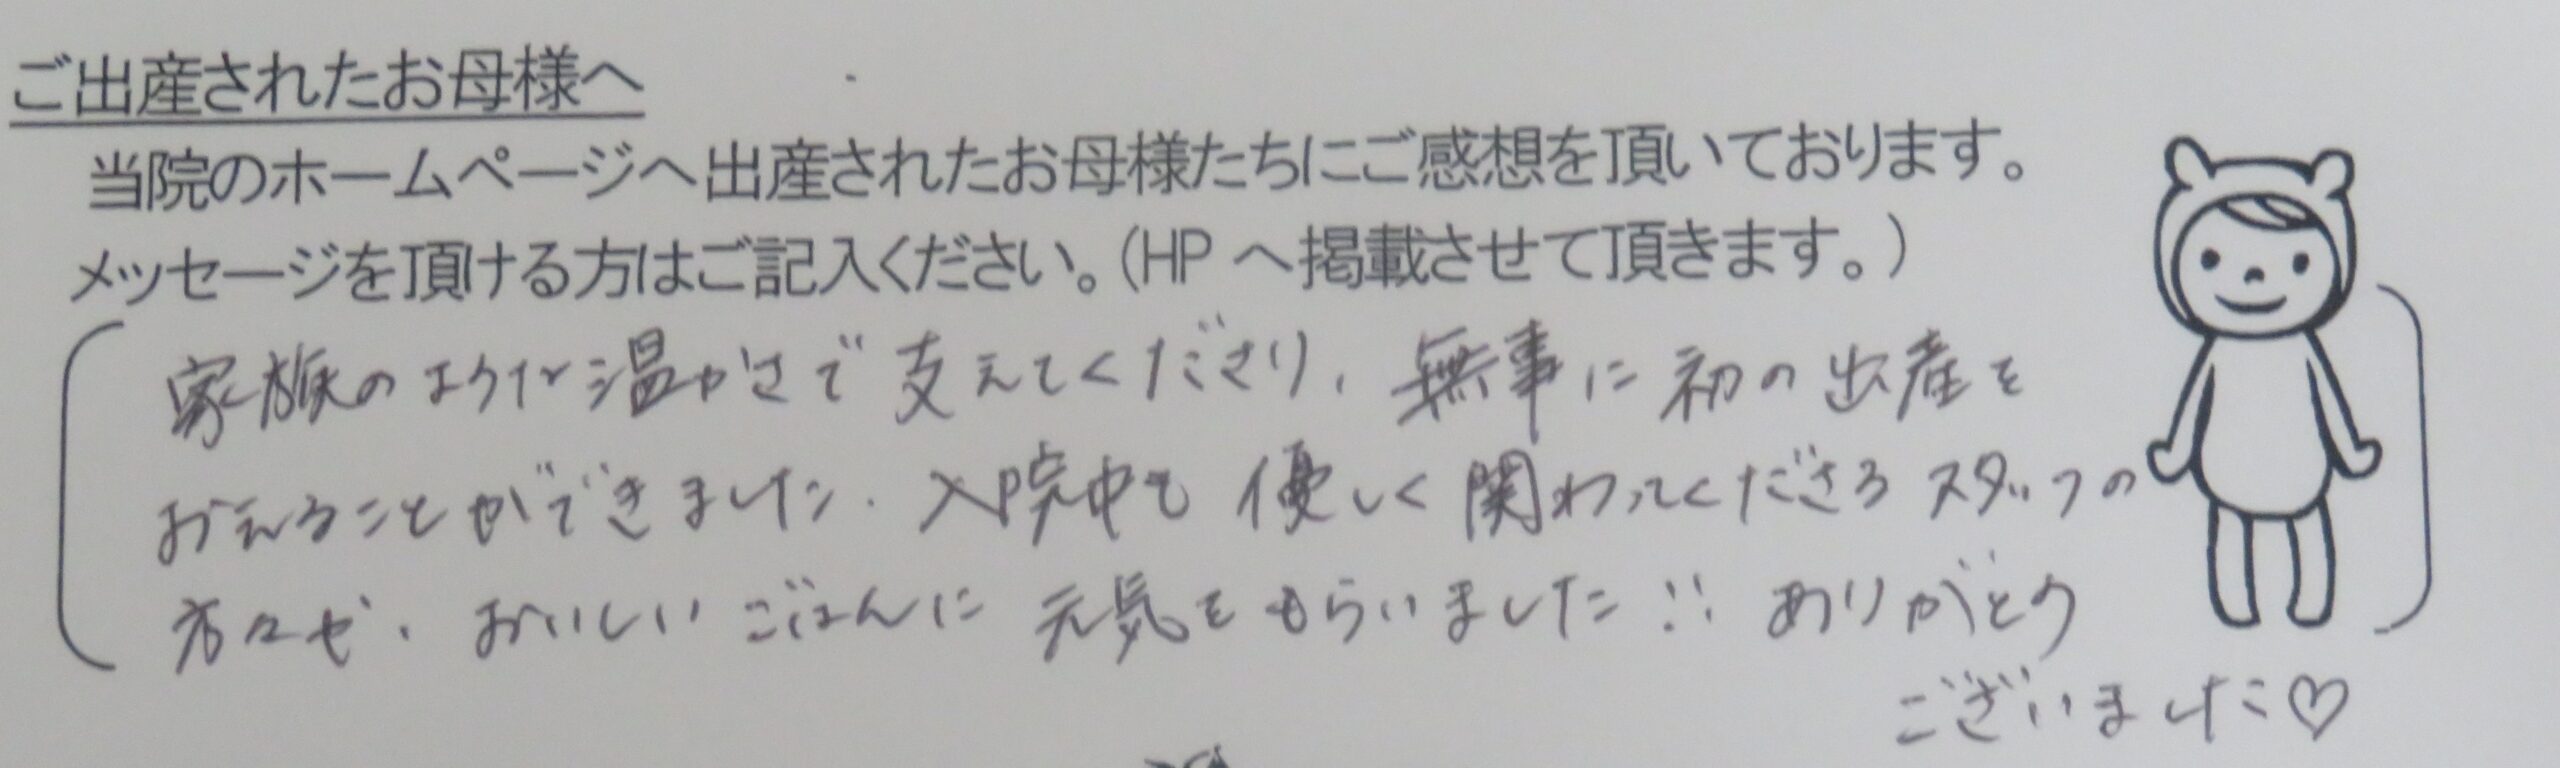 ご出産されたお母様へ
当院のホームページへ出産されたお母様たちにご感想を頂いております。
メッセージを頂ける方はご記入ください。(HPへ掲載させて頂きます。)
家族のような温かさで支えてくださり、無事に初の出産を
おえることができました。入院中も優しく関わってくださるスタッフの
方々や、おいしいごはんに元気をもらいました!! ありがとう
ございました♡